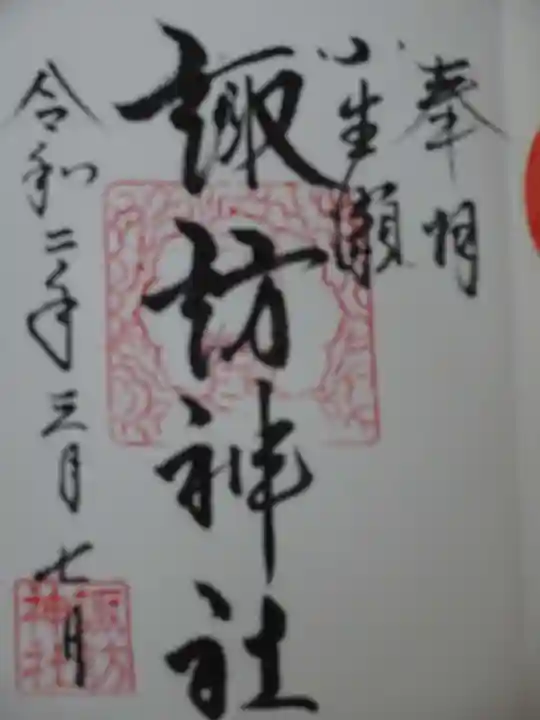 奉拝
小生瀬
諏訪神社
令和二年三月七日
諏訪
神社